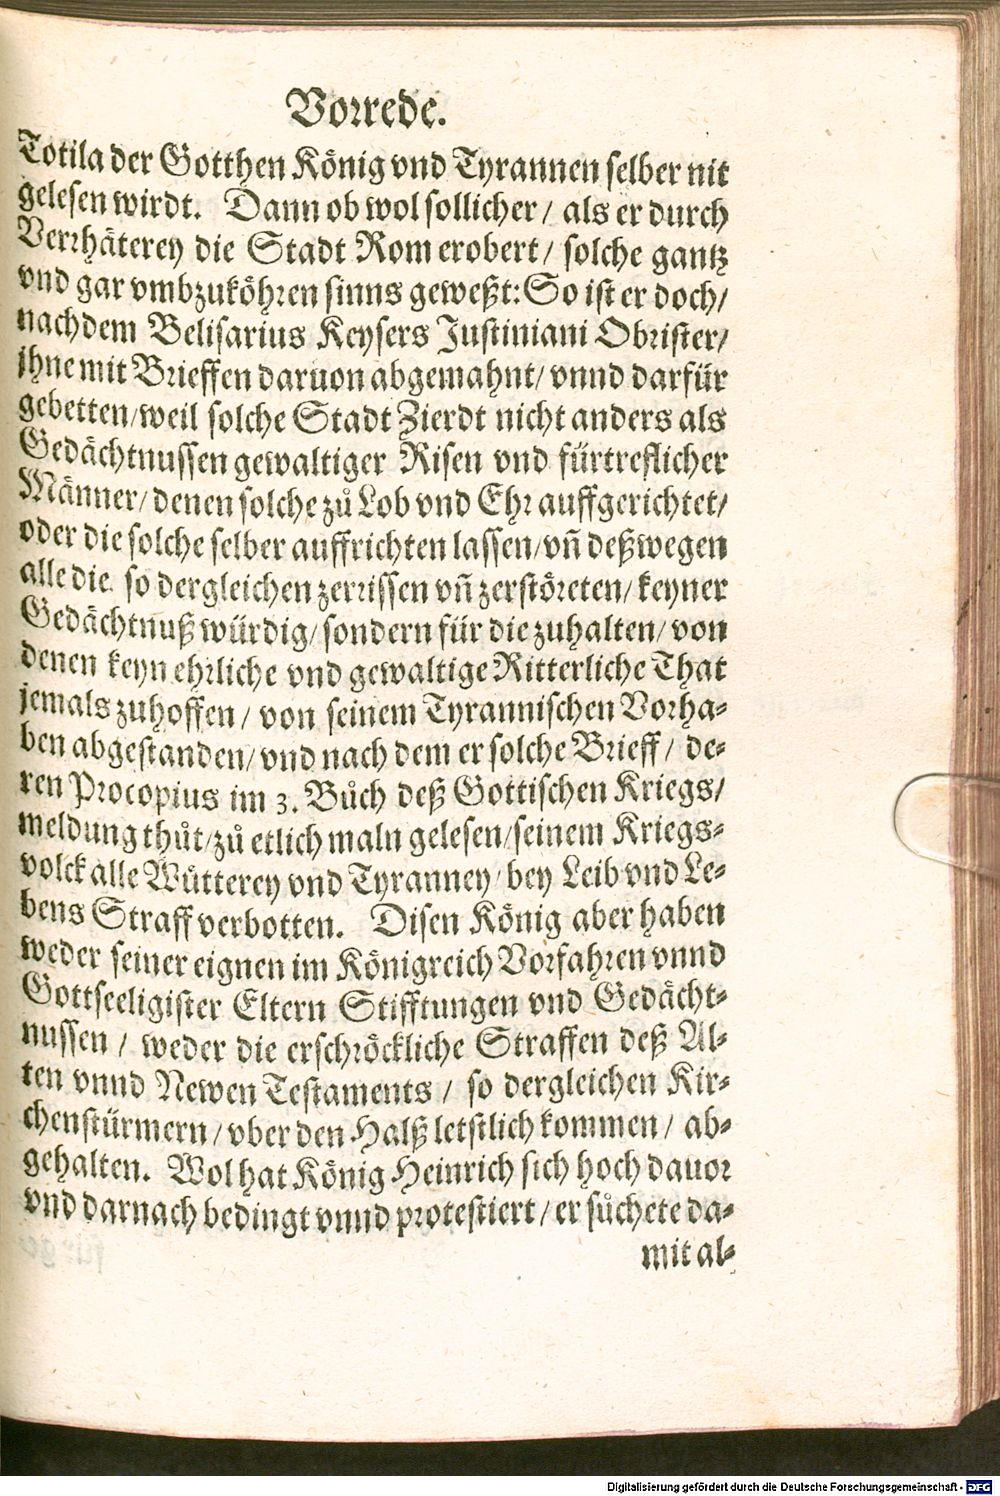 Vorrede.
Totila der Gotthen König vnd Tyrannen selber nit
gelesen wirdt. Dann ob wol sollicher / als er durch
Verrhäterey die Stadt Rom erobert / solche gantz
vnd gar vmbzuköhren sinns geweßt: So ist er doch /
nach dem Belisarius Keysers Justiniani Obrister /
jhne mit Brieffen daruon abgemahnt / vnnd darfür
gebetten / weil solche Stadt Zierdt nicht anders als
Gedächtnussen gewaltiger Risen vnd fürtreflicher
Männer / denen solche zů Lob vnd Ehr auffgerichtet /
oder die solche selber auffrichten lassen / vñ deßwegen
alle die so dergleichen zerrissen vñ zerstöreten / keyner
Gedächtnuß würdig / sondern für die zuhalten / von
denen keyn ehrliche vnd gewaltige Ritterliche That
jemals zuhoffen / von seinem Tyrannischen Vorha-
ben abgestanden / vnd nach dem er solche Brieff / de-
ren Procopius im 3. Bůch deß Gottischen Kriegs /
meldung thůt / zů etlich maln gelesen / seinem Kriegs-
volck alle Wütterey vnd Tyranney / bey Leib vnd Le-
bens Straff verbotten. Disen König aber haben
weder seiner eignen im Königreich Vorfahren vnnd
Gottseeligister Eltern Stifftungen vnd Gedächt-
nussen / weder die erschröckliche Straffen deß Al-
ten vnnd Newen Testaments / so dergleichen Kir-
chenstürmern / vber den Halß letstlich kommen / ab-
gehalten. Wol hat König Heinrich sich hoch dauor
vnd darnach bedingt vnnd protestiert / er sůchete da-
mit al-
Digitalisierung gefördert durch die Deutsche Forschungsgemeinschaft - DFG